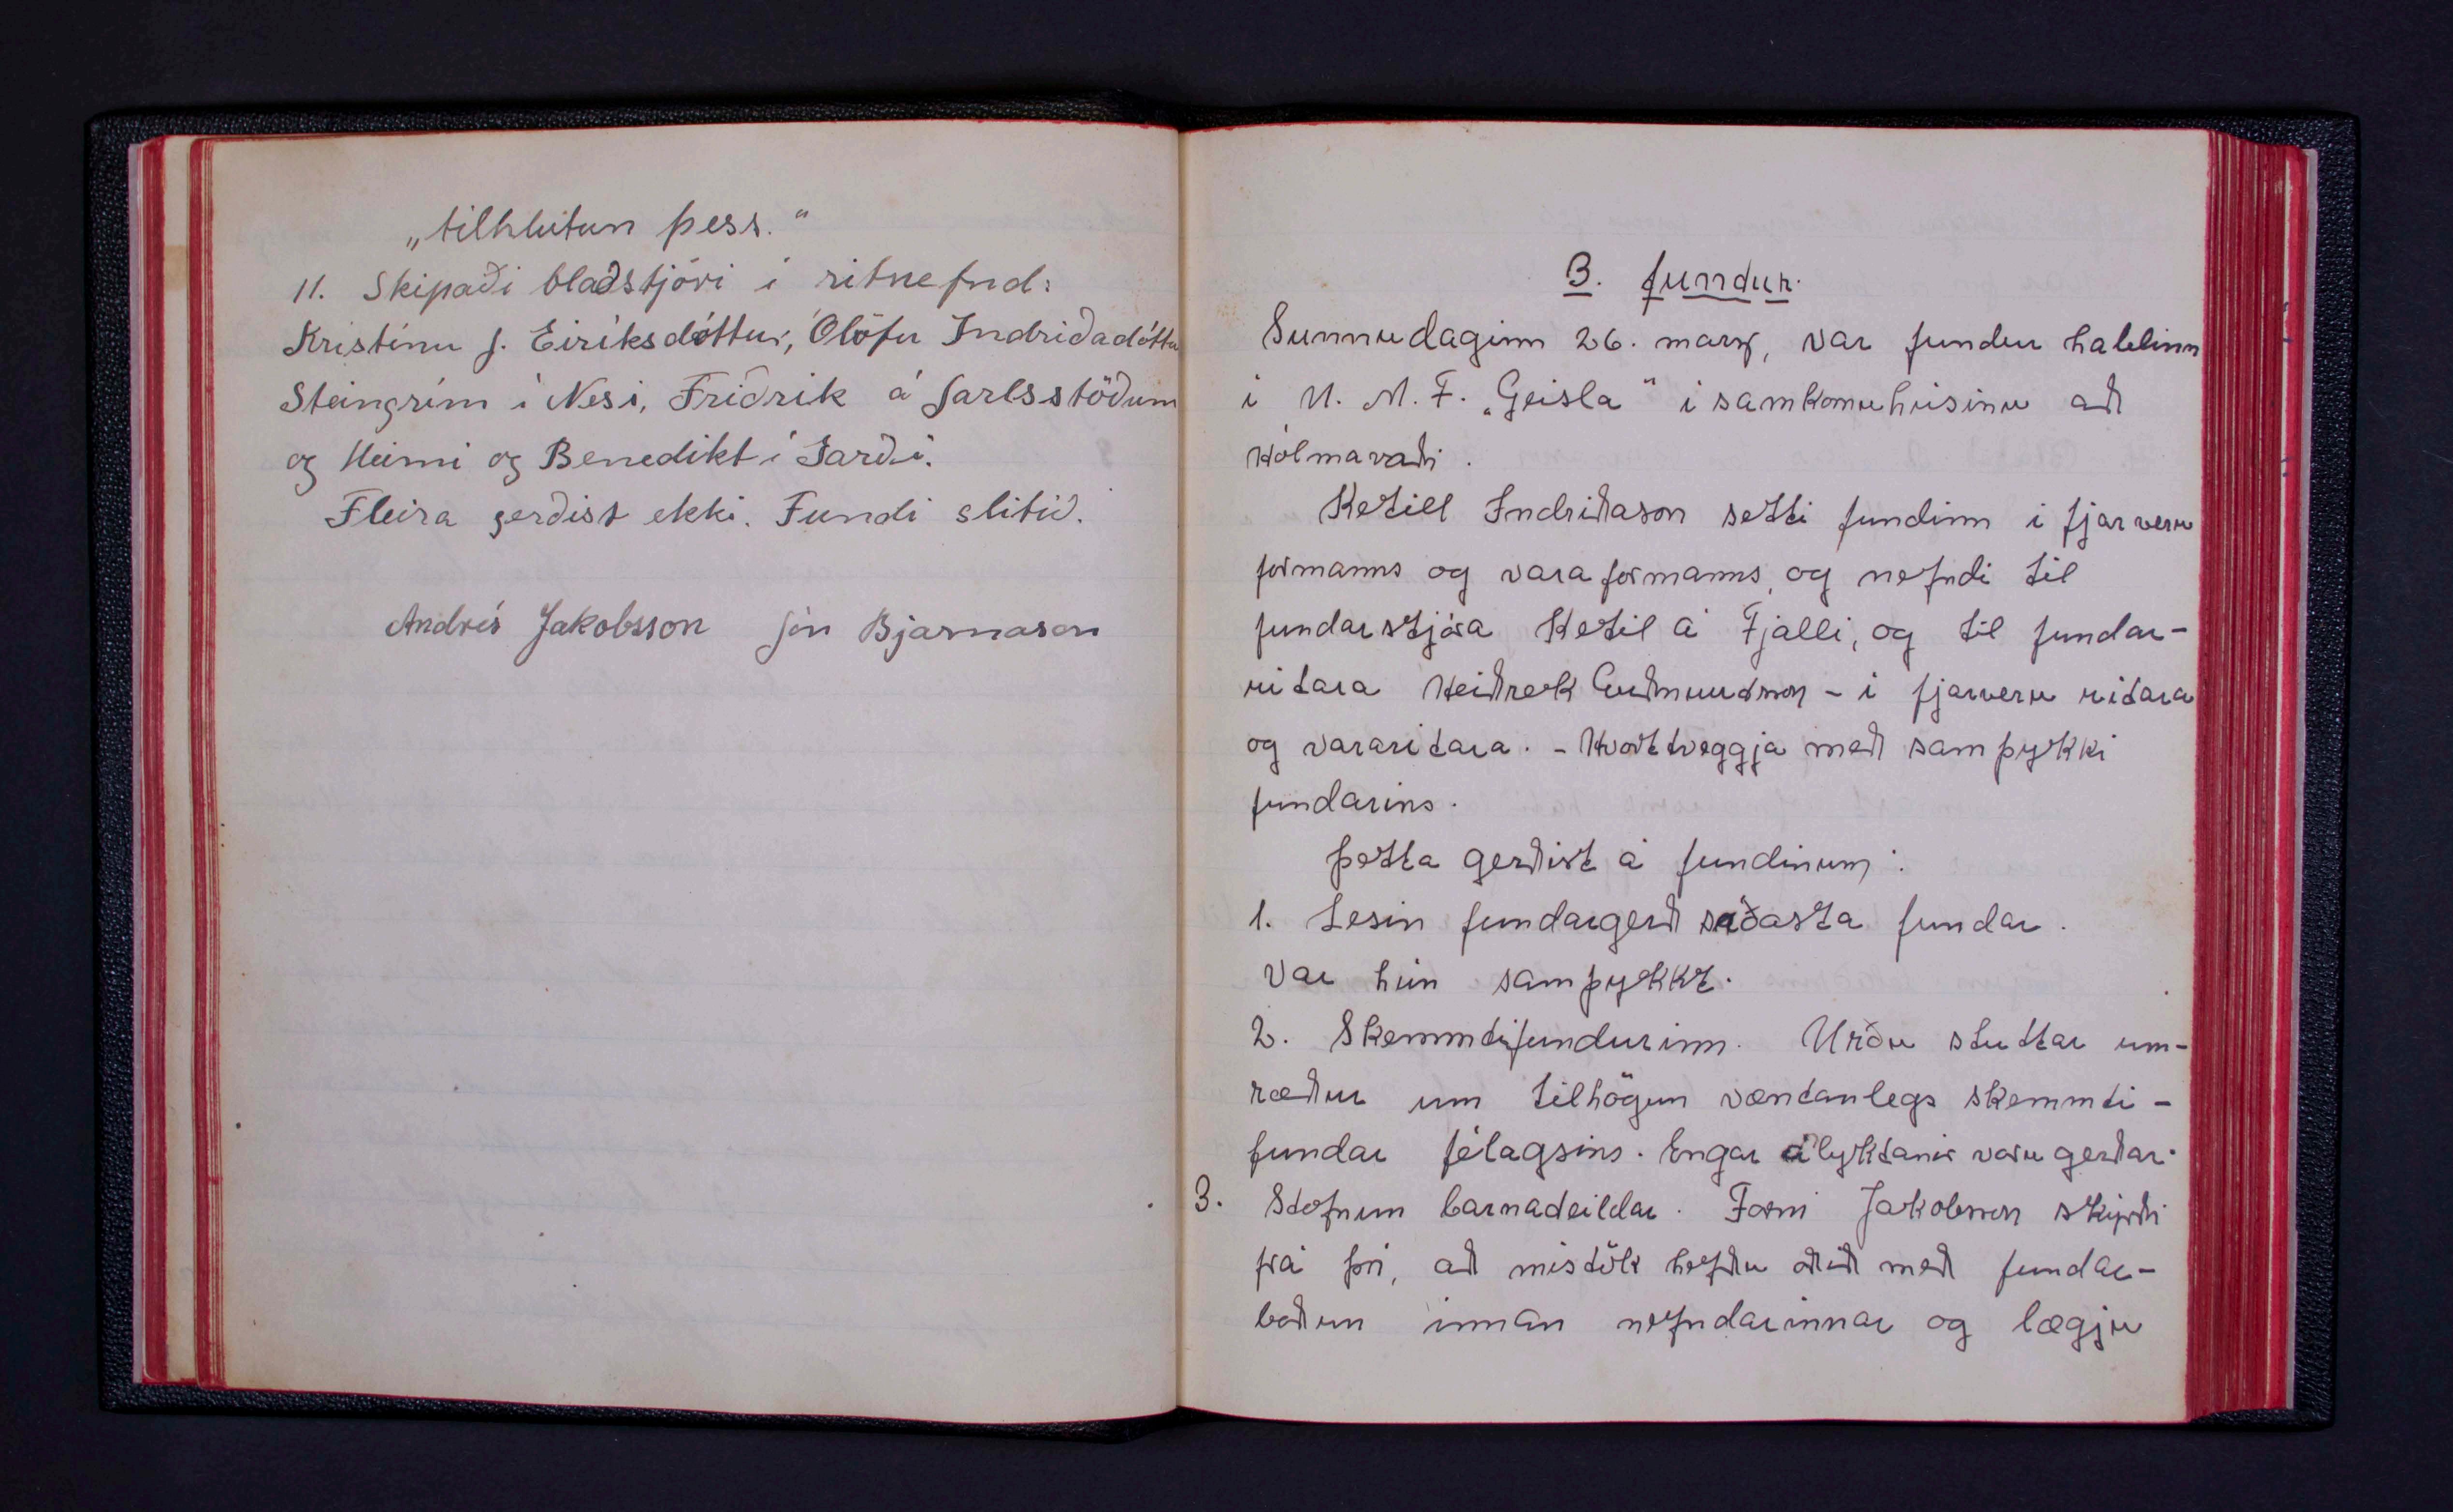 „tilhlutun þess.“
11. Skipaði blaðstjóri í ritnefnd:
Kristínu J. Eiríksdóttur, Ólöfu Indriðadóttu
Steingrím í Nesi, Friðrik á Jarlsstöðum
og Heimi og Benedikt í Garði.
Fleira gerðist ekki. Fundi slitið.
Andrés Jakobsson Jón Bjarnason
3. fundur.
Sunnudaginn 26. marz, var fundur haldinn
í U. M. F. „Geisla“ í samkomuhúsinu að
Hólmavaði.
Ketill Indriðason setti fundinn í fjarveru
formanns og varaformanns, og nefndi til
fundarstjóra Ketil á Fjalli, og til fundar-
ritara Heiðrek Guðmundsson - í fjarveru ritara
og vararitara. - Hvorttveggja með samþykki
fundarins.
Þetta gerðist á fundinum:
1. Lesin fundargerð síðasta fundar.
Var hún samþykkt.
2. Skemmtifundurinn. Urðu stuttar um-
ræður um tilhögun væntanlegs skemmti-
fundar félagsins. Engar ályktanir voru gerðar.
3. Stofnun barnadeildar. Forni Jakobsson skýrði
frá því, að mistök hefðu orðið með fundar-
boðun innan nefndarinnar og lægju